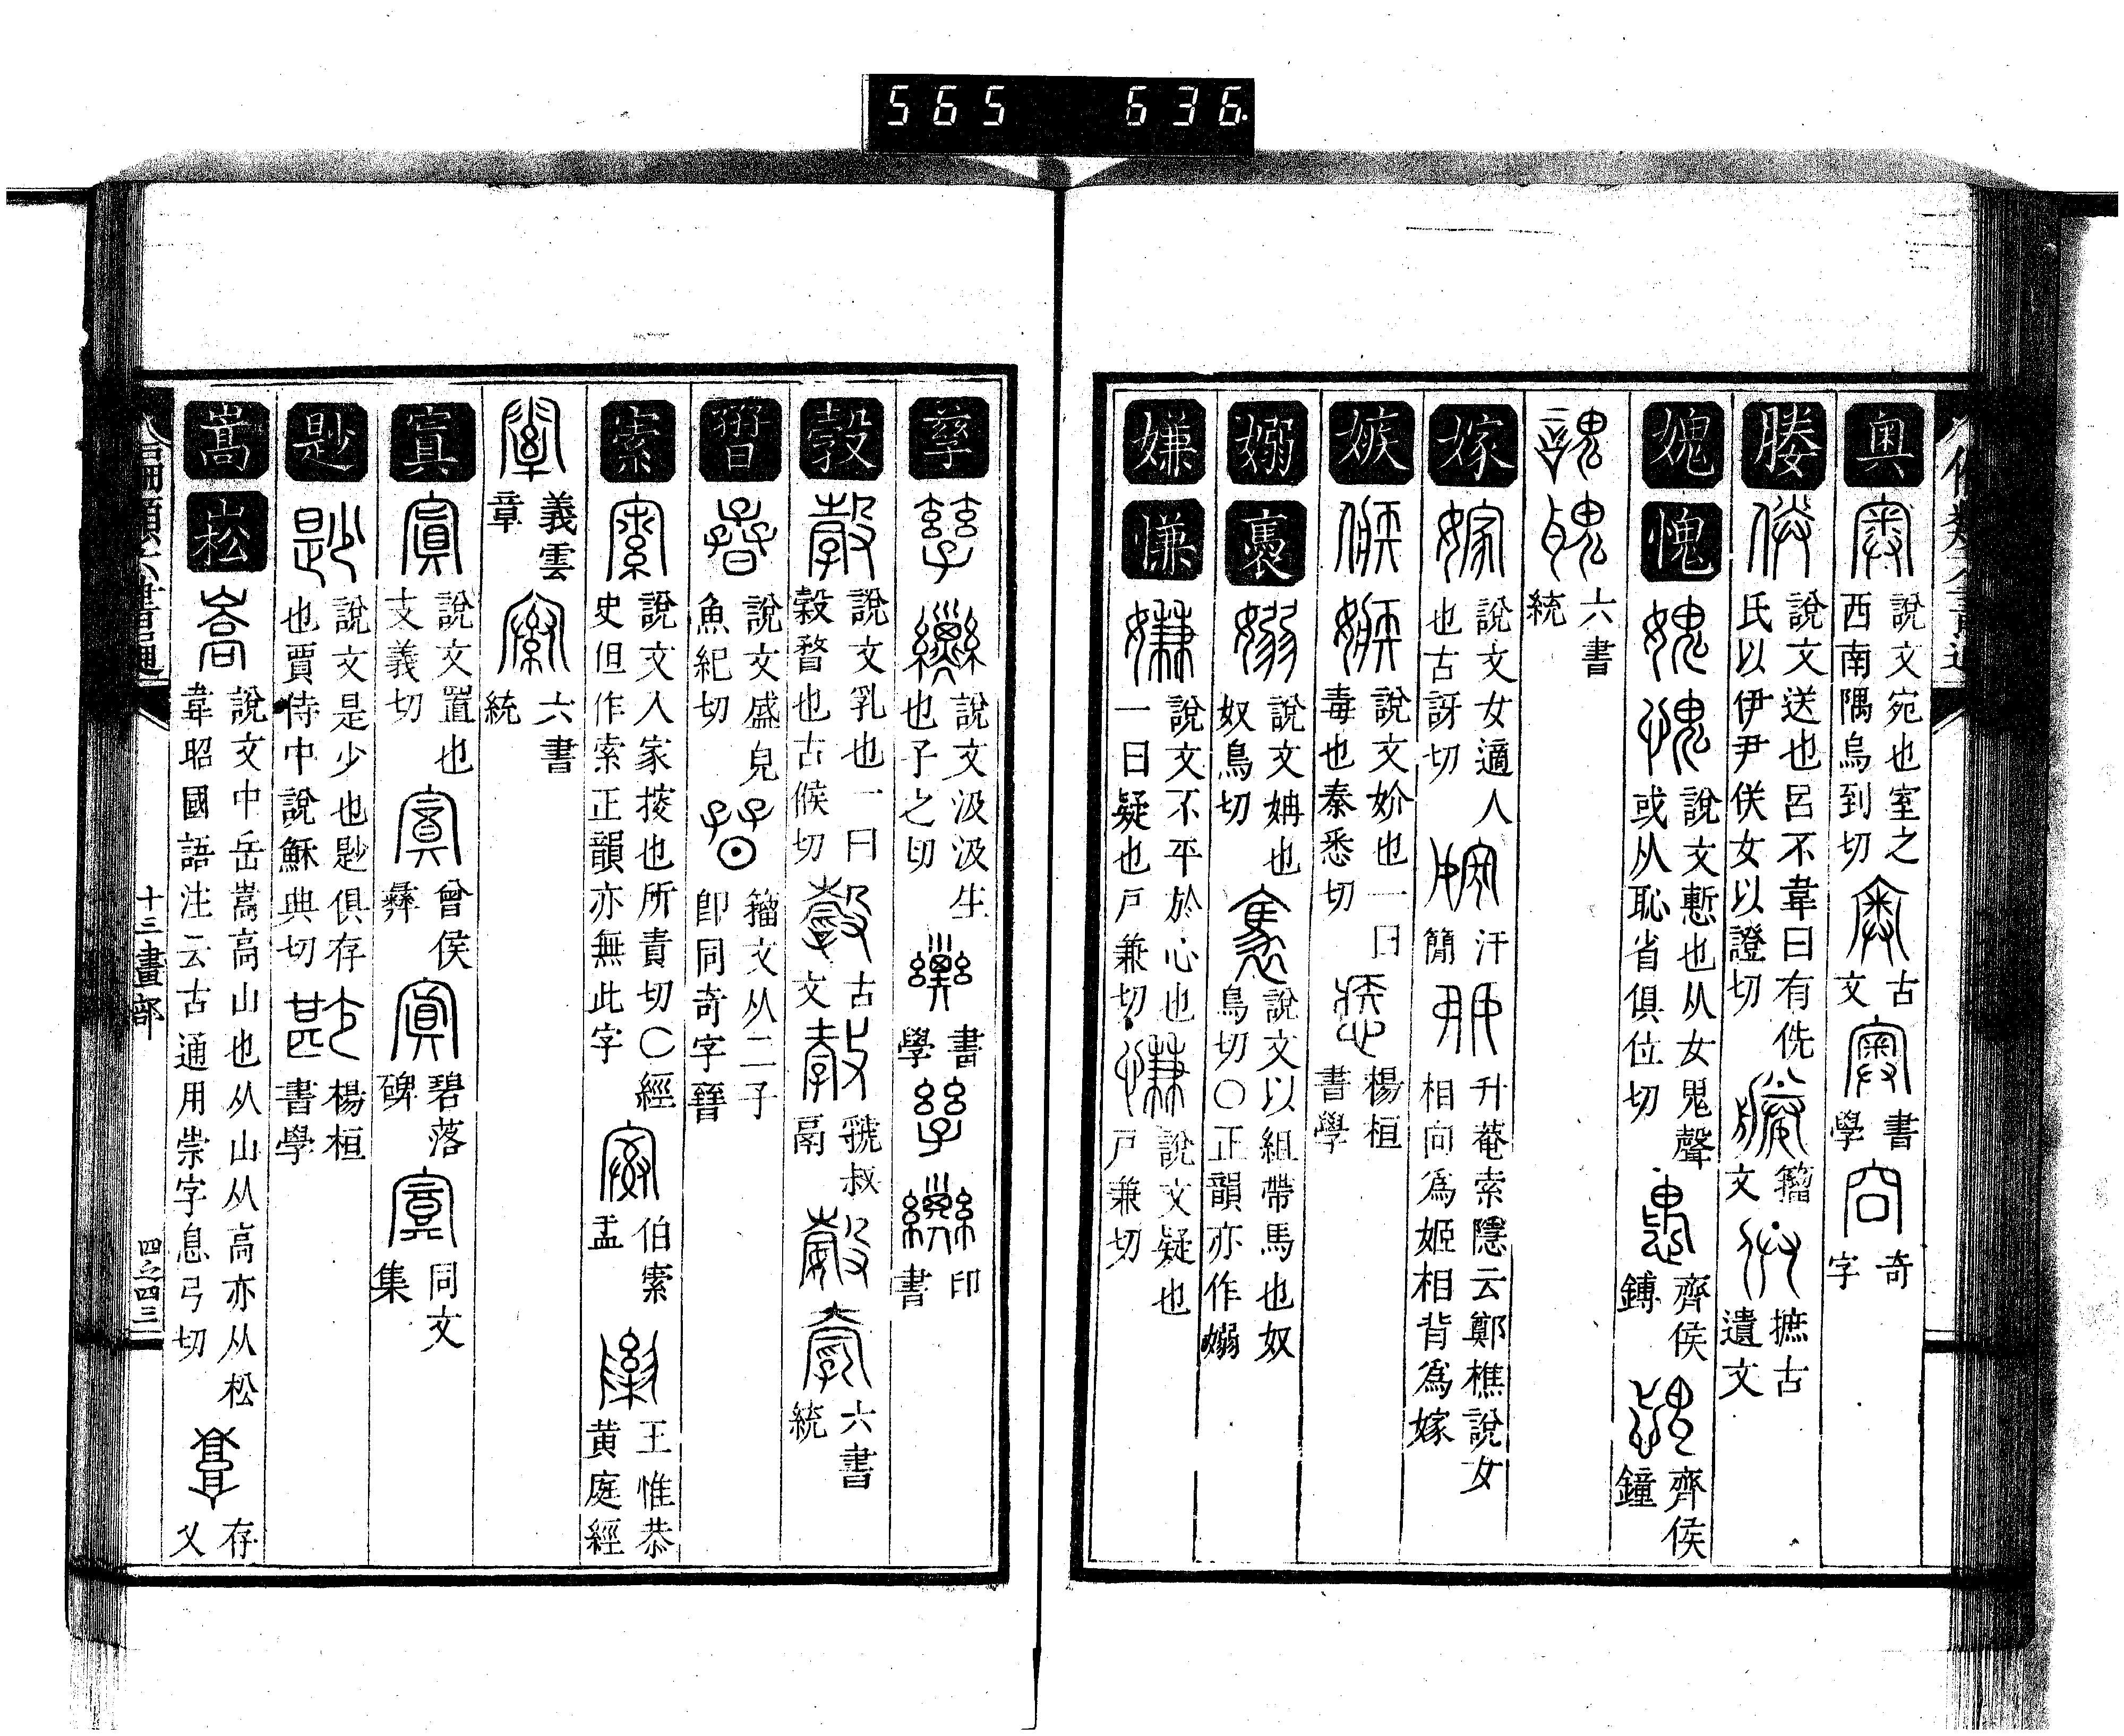 565 636
奧 說文宛也室之西南隅烏到切 古文 書學 奇字
媵 說文送也呂不韋曰有侁氏以伊尹佚女以證切 籀文 摭古遺文
媿 愧 說文慙也从女鬼聲或从恥省俱位切 齊侯鎛 齊侯鐘
六書統
嫁 說文女適人也古訝切 汗簡 升菴索隱云鄭樵說女相向為姬相背為嫁
嫉 說文妎也一曰毒也秦悉切 楊桓書學
嫋 裊 說文姌也奴鳥切 說文以組帶馬也奴鳥切〇正韻亦作嫋
嫌 慊 說文不平於心也一曰疑也戶兼切 說文疑也戶兼切
孳 說文汲汲生也子之切 書學 印書
說文乳也一曰穀瞀也古候切 古文 虢叔鬲 六書統
說文盛皃魚紀切 籀文从二子卽同奇字簪
說文入家搜也所責切〇經史但作索正韻亦無此字 伯索盂 王惟恭黃庭經
義雲章 六書統
寘 說文置也支義切 曾侯彝 碧落碑 同文集
尟 說文是少也尟俱存也賈侍中說穌典切 楊桓書學
嵩 崧 說文中岳嵩高山也从山从高亦从松韋昭國語注云古通用崇字息弓切 存乂
十三畫部 四之四三